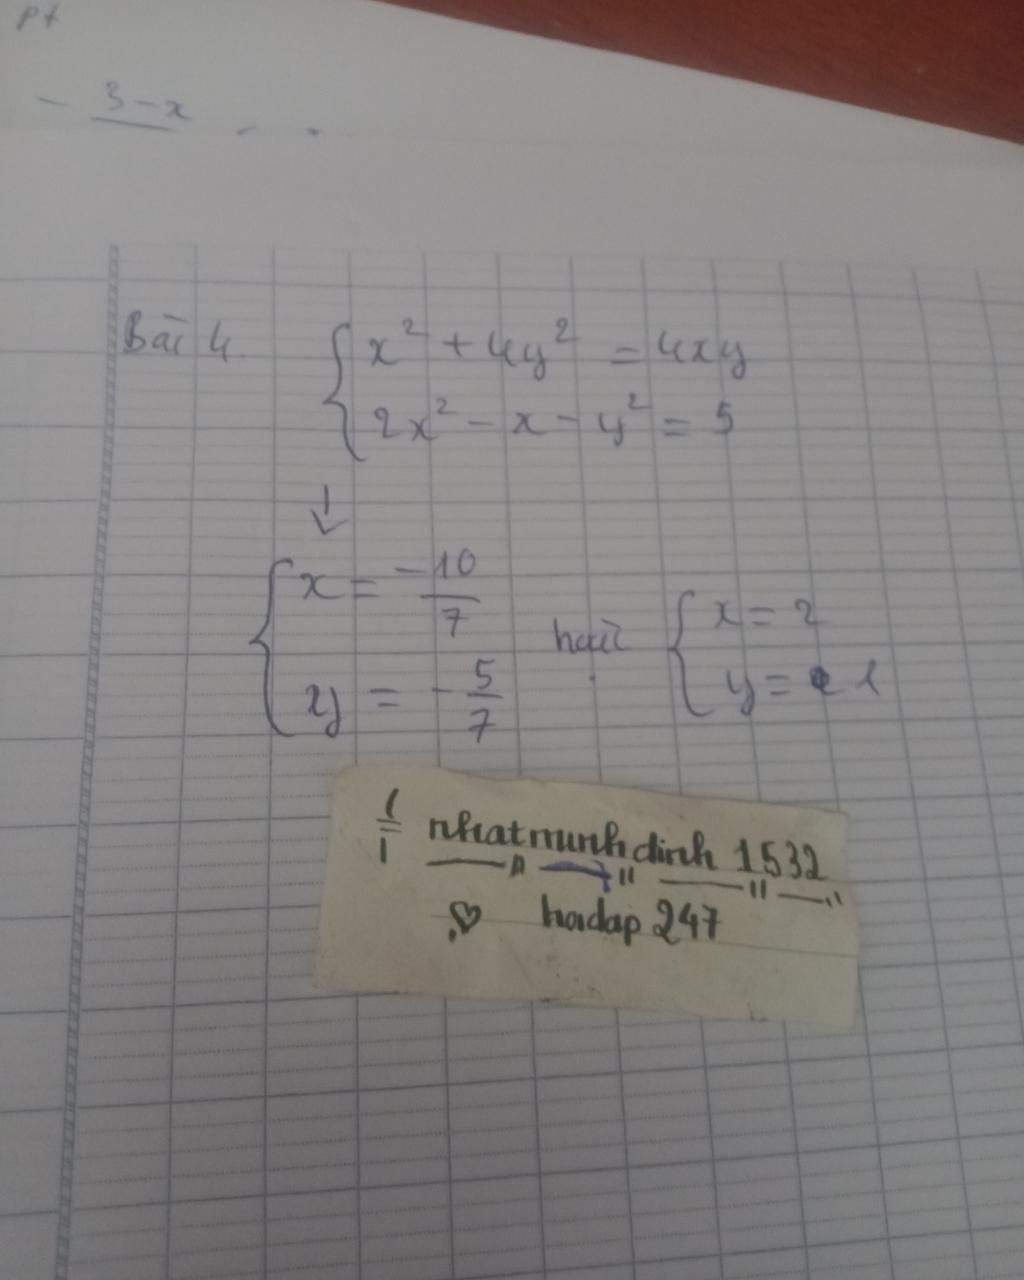 pt
- 3-x
Bài 4.
x² + 4y² = 4xy
2x² - x - y² = 5
↓
x = -10/7
y = -5/7
hoặc
x = 2
y = 1
nhatminhdinh 1532
hoidap 247